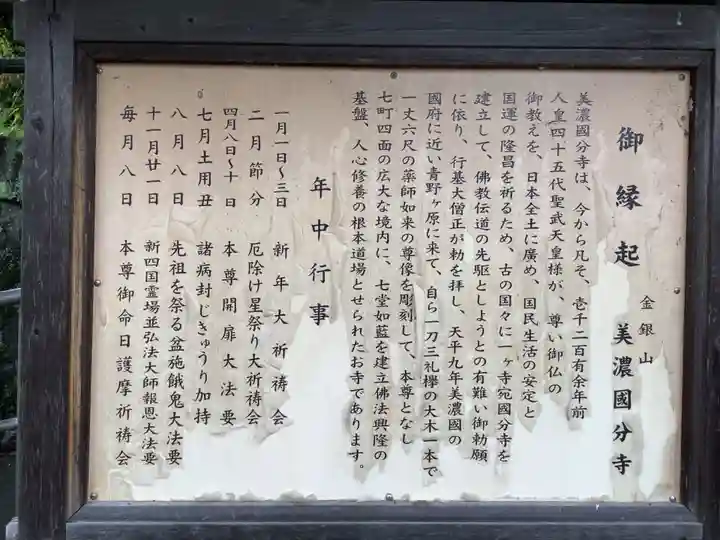 御縁起
金銀山
美濃國分寺
美濃國分寺は、今から凡そ、壱千二百有余年前
人皇四十五代聖武天皇様が、尊い御仏の
御教えを、日本全土に廣め、国民生活の安定と
国運の隆昌を祈るため、古の国々に一ヶ寺宛國分寺を
建立して、佛教伝道の先駆としようとの有難い御勅願
に依り、行基大僧正が勅を拝し、天平九年美濃國の
國府に近い青野ヶ原に来て、自ら一刀三礼欅の大木一本で
一丈六尺の薬師如来の尊像を彫刻して、本尊となし
七町四面の広大な境内に、七堂如藍を建立佛法興隆の
基盤、人心修養の根本道場とせられたお寺であります。
年中行事
一月一日〜三日 新年大祈祷会
二月節分 厄除け星祭り大祈祷会
四月八日〜十日 本尊開扉大法要
七月土用丑 諸病封じきゅうり加持
八月八日 先祖を祭る盆施餓鬼大法要
十一月廿一日 新四国霊場並弘法大師報恩大法要
毎月八日 本尊御命日護摩祈祷会